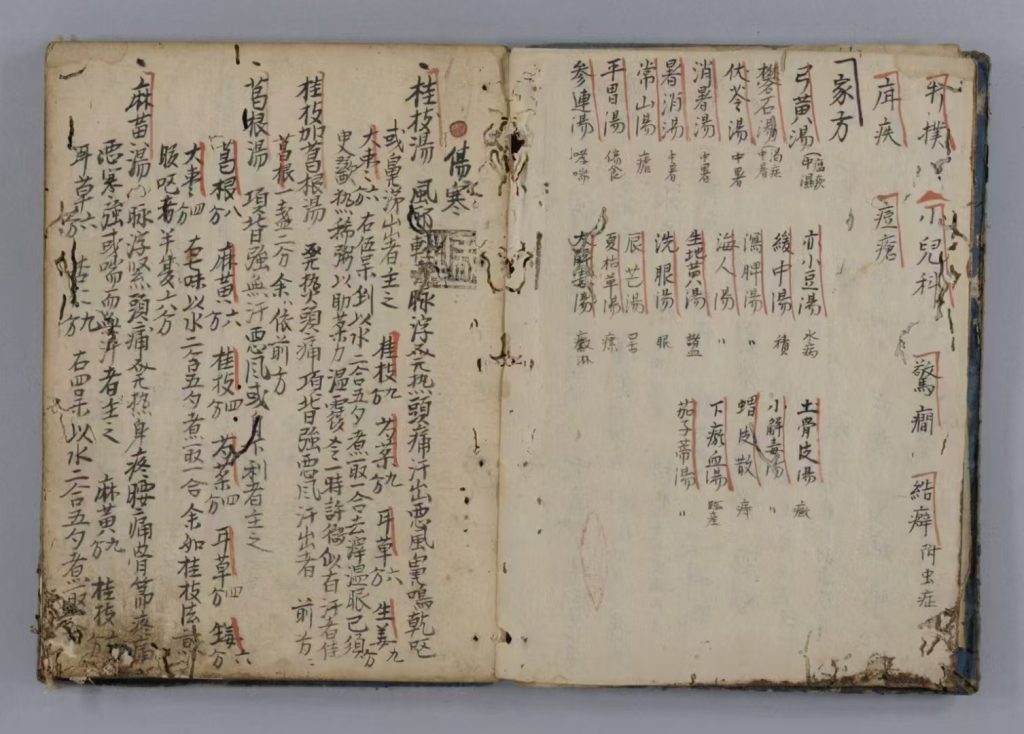 打撲 小兒科 驚癇 結癖 附虫症
疳疾 痘瘡
家方
弓黄湯
礬石湯
伏苓湯 中暑
消暑湯 中暑
暑消湯 中暑
常山湯 瘧
平胃湯 傷食
参連湯 哮喘
赤小豆湯 水病
緩中湯 積
瀉脾湯 〃
海人湯 〃
生地黄湯
洗眼湯 眼
辰芒湯
夏枯草湯 瘰
大解毒湯 黴
土骨皮湯 癥
小解毒湯 〃
蝟皮散 痔
下瘀血湯 臨産
茄子蒂湯 〃
傷寒
桂枝湯 風 軽 脉浮發热頭痛汗出悪風鼻鳴乾呕
或鼻涕出者主之 桂枝九 芍薬九 耳草六 生姜九分
大枣六分 右伍味剉以水二合五夕煮取一合去滓温服已須
史歠热稀粥以助薬力温覆令一時許徧似有汗者佳
桂枝加葛根湯 発热頭痛項背強悪風汗出者 前方
葛根二分余依前方
葛根湯 項背強無汗悪風或 利者主之
葛根八分 麻黄六分 桂枝四分 芍薬四分 耳草四分 生姜六分
大枣四分 右七味以水二合五夕煮取一合余如桂枝法
呕者半夏六分
麻黄湯 脉浮緊頭痛發热身疼腰痛骨節疼痛
悪寒強或喘而無汗者主之 麻黄九分 桂枝六分
耳草六分 右四味以水二合五夕煮取